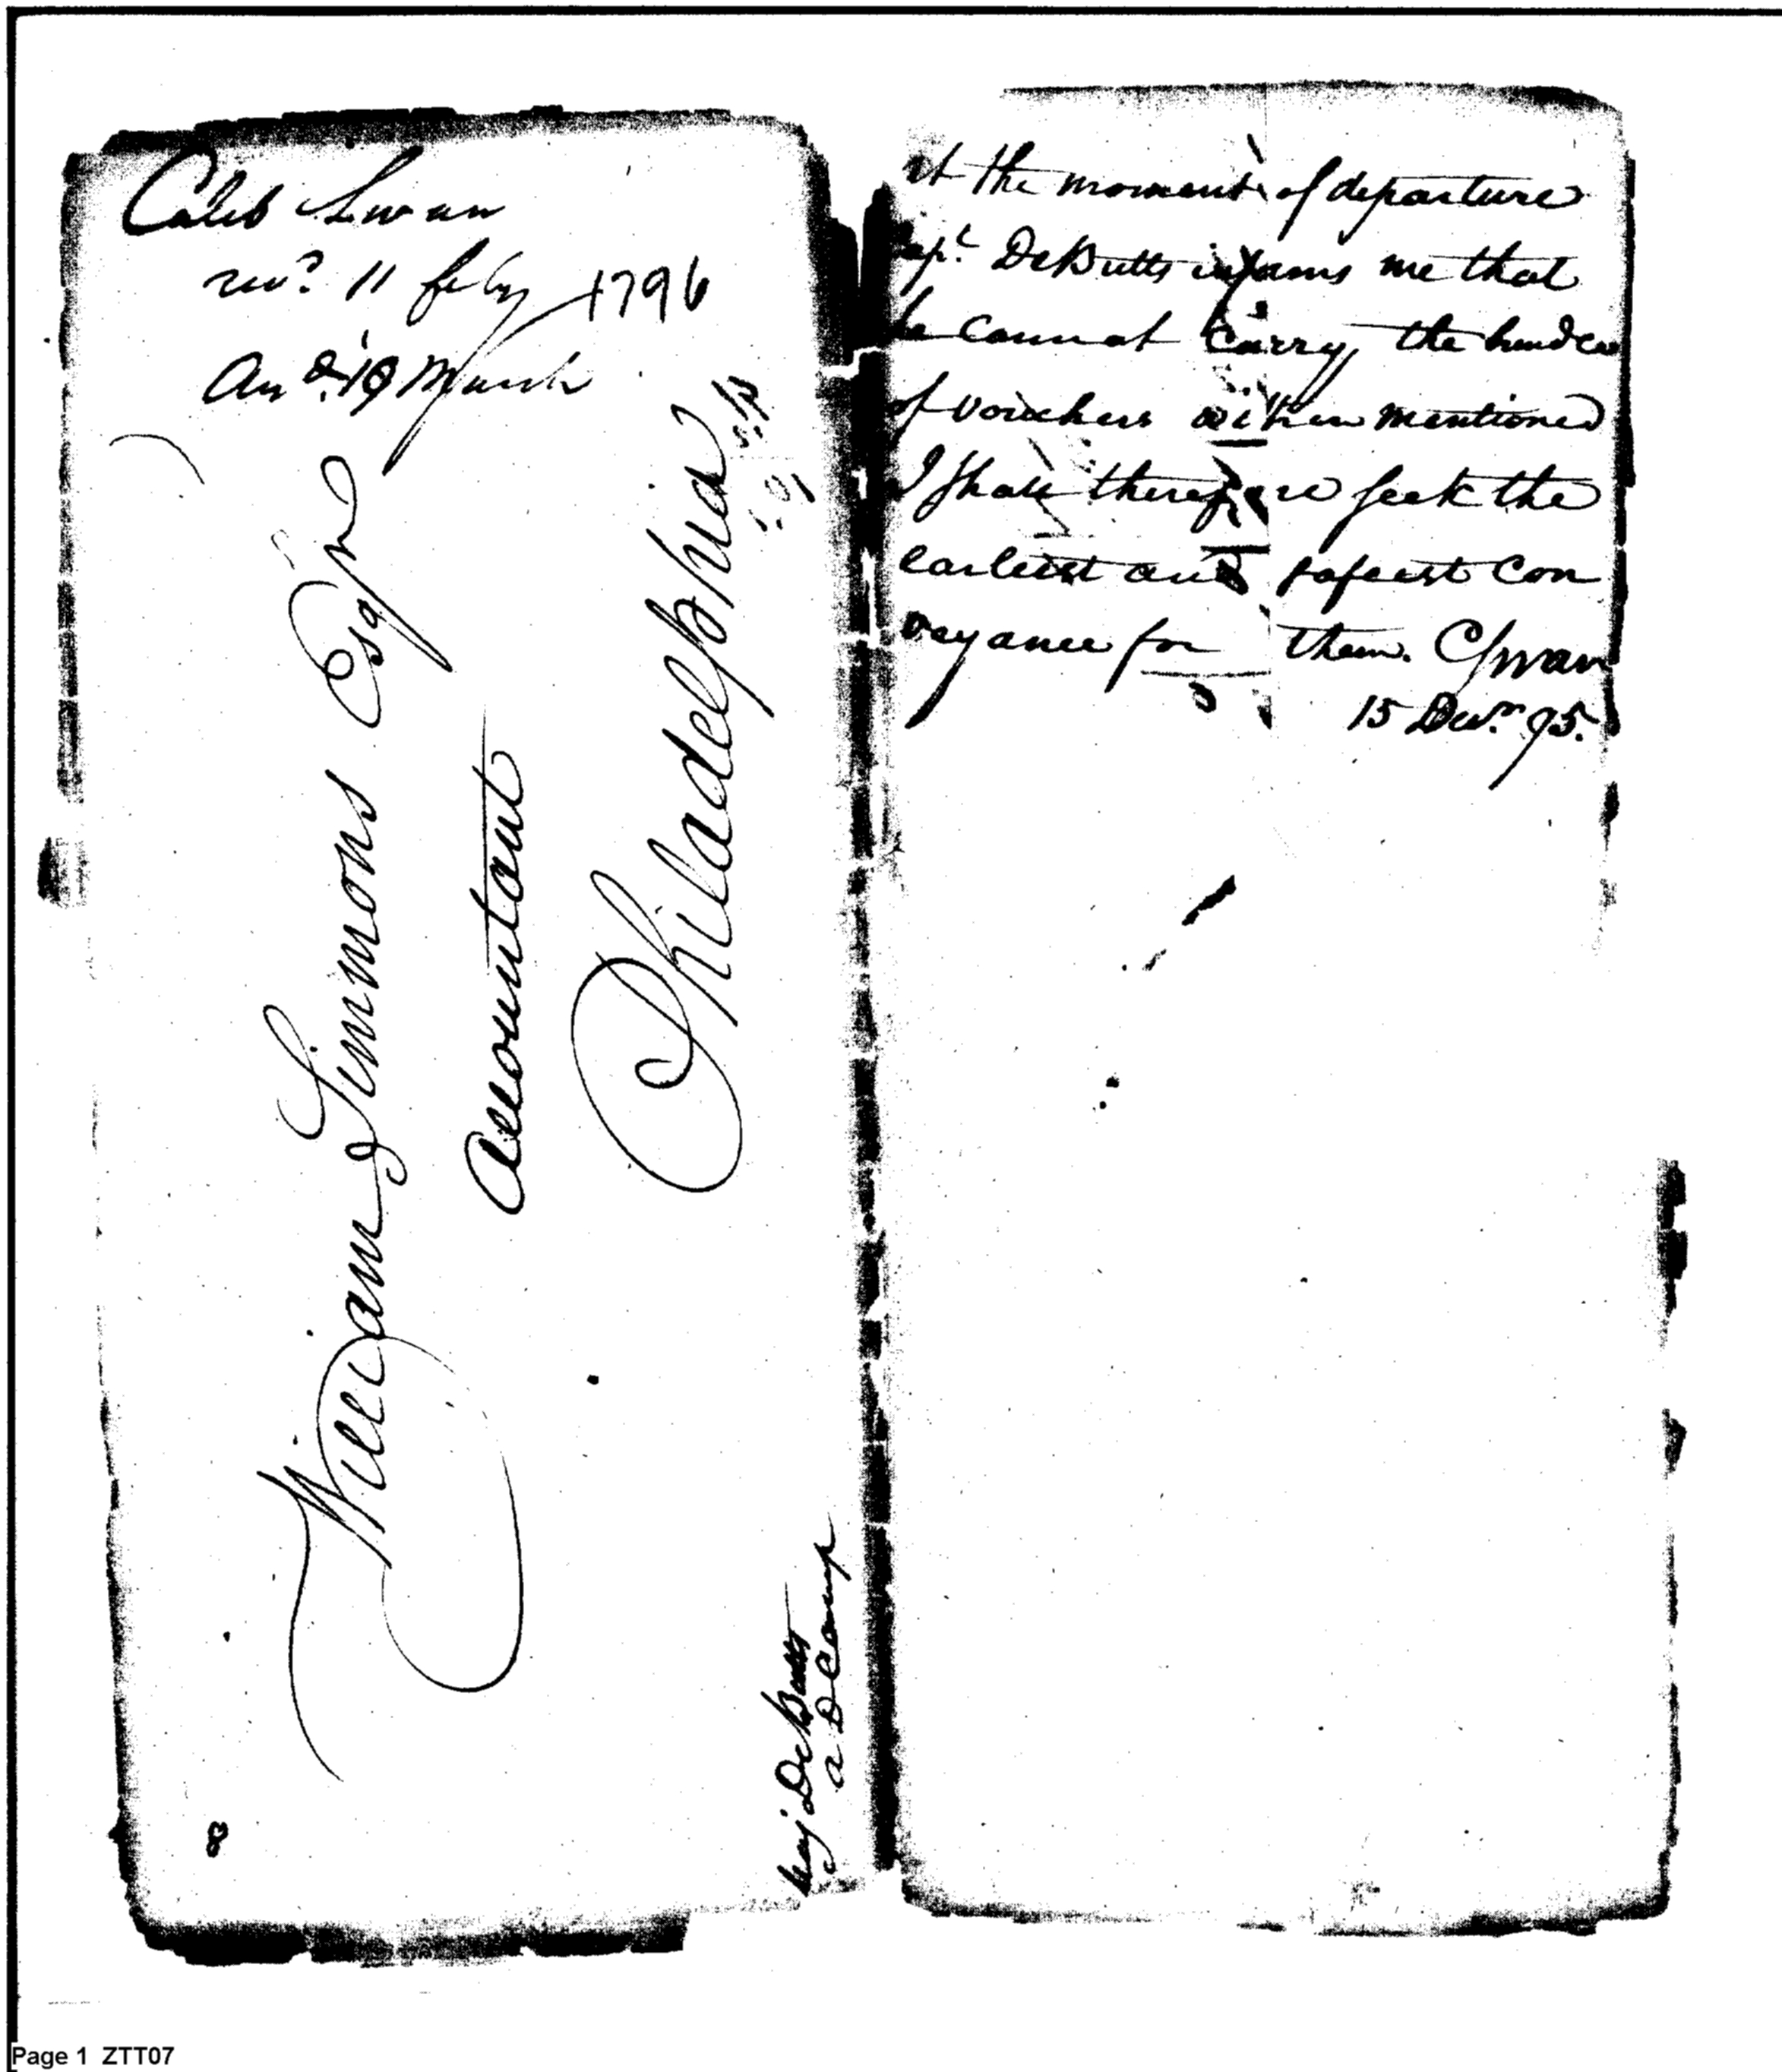 Caleb Swan
recd. 11 feby 1796
Ansd. 19 March
William Simmons Esqr
Accountant
Philadelphia
Maj DeButts
a D Camp
8
at the moment of departure
Capt. DeButts informs me that
he cannot carry the bundle
of vouchers within mentioned
I shall therefore seek the
earliest and safeest con
veyance for them. CSwan
15 Decr. 95.
Page 1 ZTT07